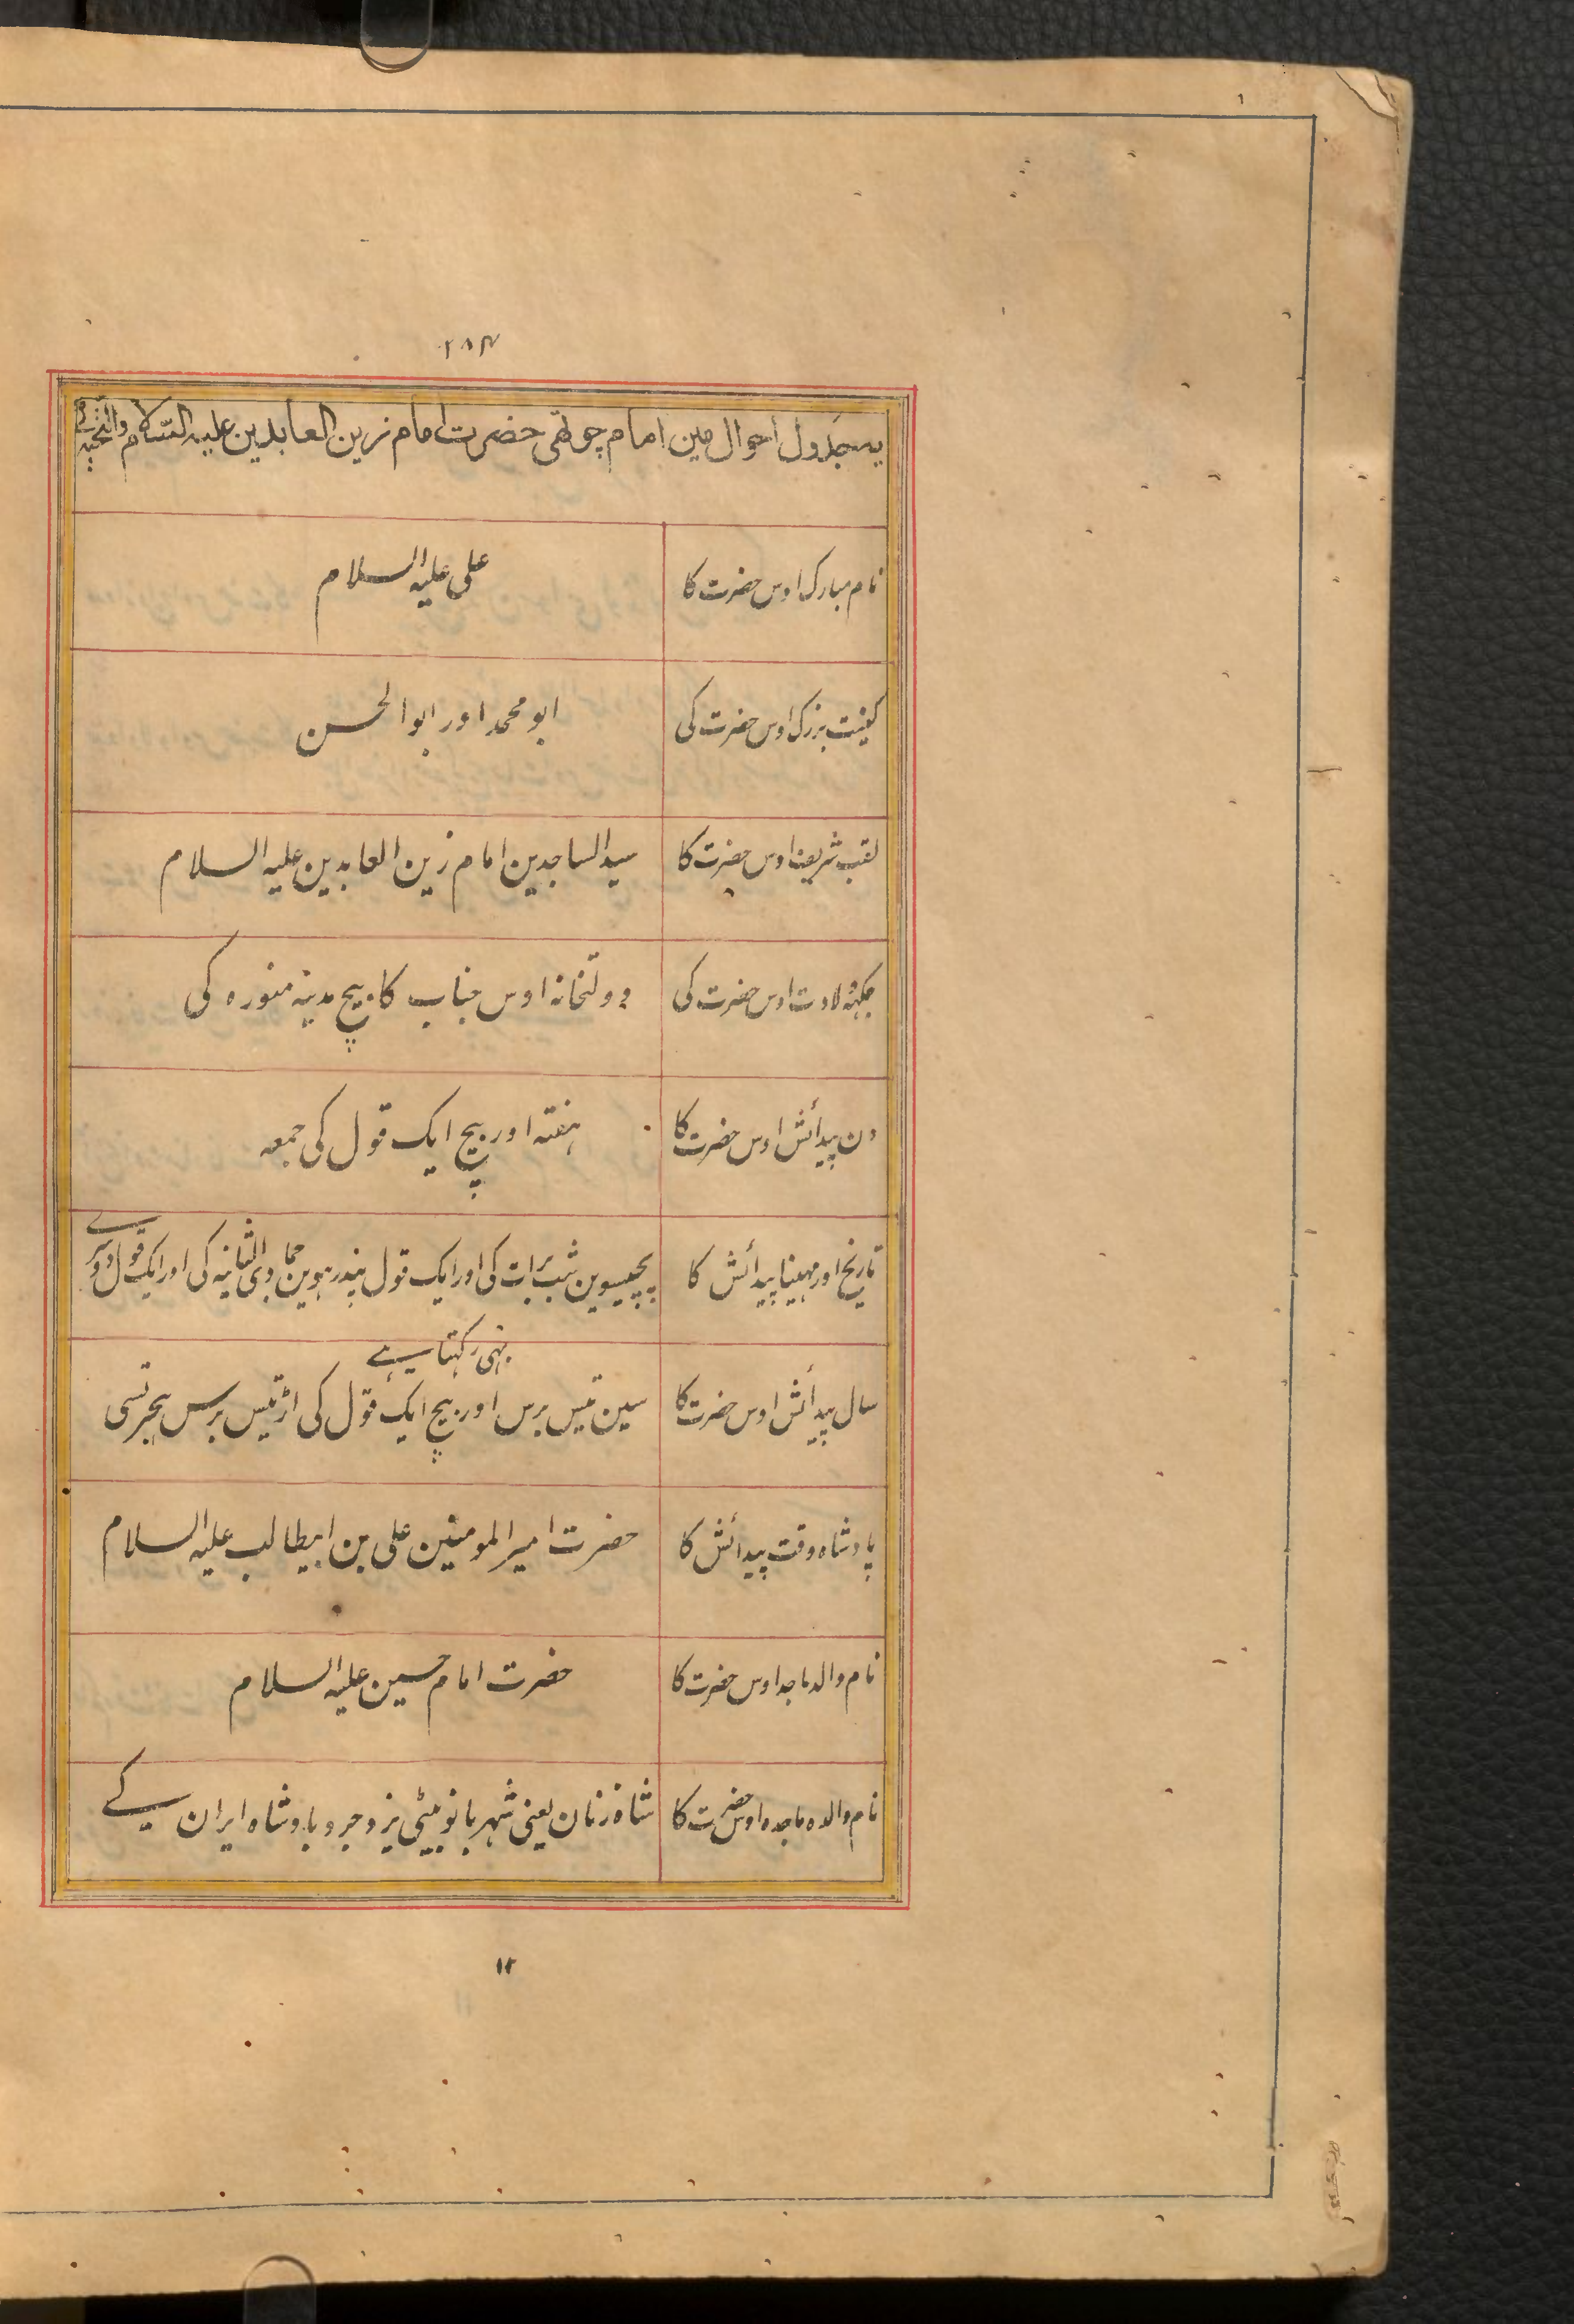 ۲۸۴
یہ جدول احوال مین امام چوتھی حضرت امام زین العابدین علیہ السلام والتحیہ کی
نام مبارک اوس حضرت کا
علی علیہ السلام
کنیت بزرک اوس حضرت کی
ابو محمد اور ابوالحسن
لقب شریف اوس حضرت کا
سید الساجدین امام زین العابدین علیہ السلام
جکہہ ولادت اوس حضرت کی
دولتخانہ اوس جناب کا بیچ مدینہ منورہ کی
دن پیدائش اوس حضرت کا
ہفتہ اور بیچ ایک قول کی جمعہ
تاریخ اور مہینا پیدائش کا
پچیسوین شب برات کی اور ایک قول پندرہوین جمادی الثانیہ کی اور ایک قول دوسرے
بہی رکہتا ہے
سال پیدائش اوس حضرت کا
سین تیس برس اور بیچ ایک قول کی اڑتیس برس ہجرتسی
پادشاہ وقت پیدائش کا
حضرت امیر المومنین علی بن ابیطالب علیہ السلام
نام والد ماجد اوس حضرت کا
حضرت امام حسین علیہ السلام
نام والدہ ماجدہ اوس حضرت کا
شاہ زنان یعنی شہر بانو بیٹی یزدجرد بادشاہ ایران کے
۱۲